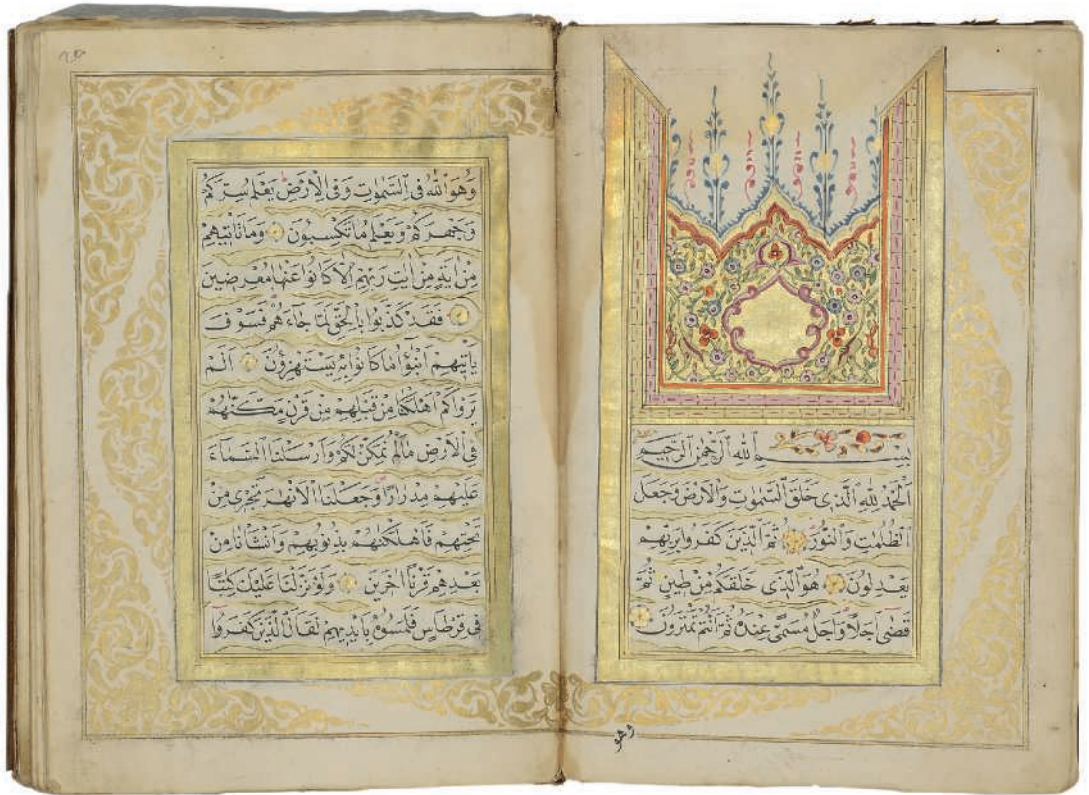 بِسْمِ اللهِ الرَّحْمٰنِ الرَّحِيمِ
اَلْحَمْدُ لِلّٰهِ الَّذِى خَلَقَ السَّمٰوٰتِ وَالْاَرْضَ وَجَعَلَ
الظُّلُمٰتِ وَالنُّورَ ثُمَّ الَّذِينَ كَفَرُوا بِرَبِّهِمْ
يَعْدِلُونَ هُوَ الَّذِى خَلَقَكُمْ مِنْ طِينٍ ثُمَّ
قَضٰى اَجَلًا وَاَجَلٌ مُسَمًّى عِنْدَهُ ثُمَّ اَنْتُمْ تَمْتَرُونَ
وهو
وَهُوَ اللهُ فِى السَّمٰوٰتِ وَفِى الْاَرْضِ يَعْلَمُ سِرَّكُمْ
وَجَهْرَكُمْ وَيَعْلَمُ مَا تَكْسِبُونَ وَمَا تَاْتِيهِمْ
مِنْ اٰيَةٍ مِنْ اٰيٰتِ رَبِّهِمْ اِلَّا كَانُوا عَنْهَا مُعْرِضِينَ
فَقَدْ كَذَّبُوا بِالْحَقِّ لَمَّا جَاءَهُمْ فَسَوْفَ
يَاْتِيهِمْ اَنْبٰٓؤُا مَا كَانُوا بِهِ يَسْتَهْزِؤُنَ اَلَمْ
يَرَوْا كَمْ اَهْلَكْنَا مِنْ قَبْلِهِمْ مِنْ قَرْنٍ مَكَّنّٰهُمْ
فِى الْاَرْضِ مَا لَمْ نُمَكِّنْ لَكُمْ وَاَرْسَلْنَا السَّمَاءَ
عَلَيْهِمْ مِدْرَارًا وَجَعَلْنَا الْاَنْهٰرَ تَجْرِى مِنْ
تَحْتِهِمْ فَاَهْلَكْنٰهُمْ بِذُنُوبِهِمْ وَاَنْشَاْنَا مِنْ
بَعْدِهِمْ قَرْنًا اٰخَرِينَ وَلَوْ نَزَّلْنَا عَلَيْكَ كِتَابًا
فِى قِرْطَاسٍ فَلَمَسُوهُ بِاَيْدِيهِمْ لَقَالَ الَّذِينَ كَفَرُوا